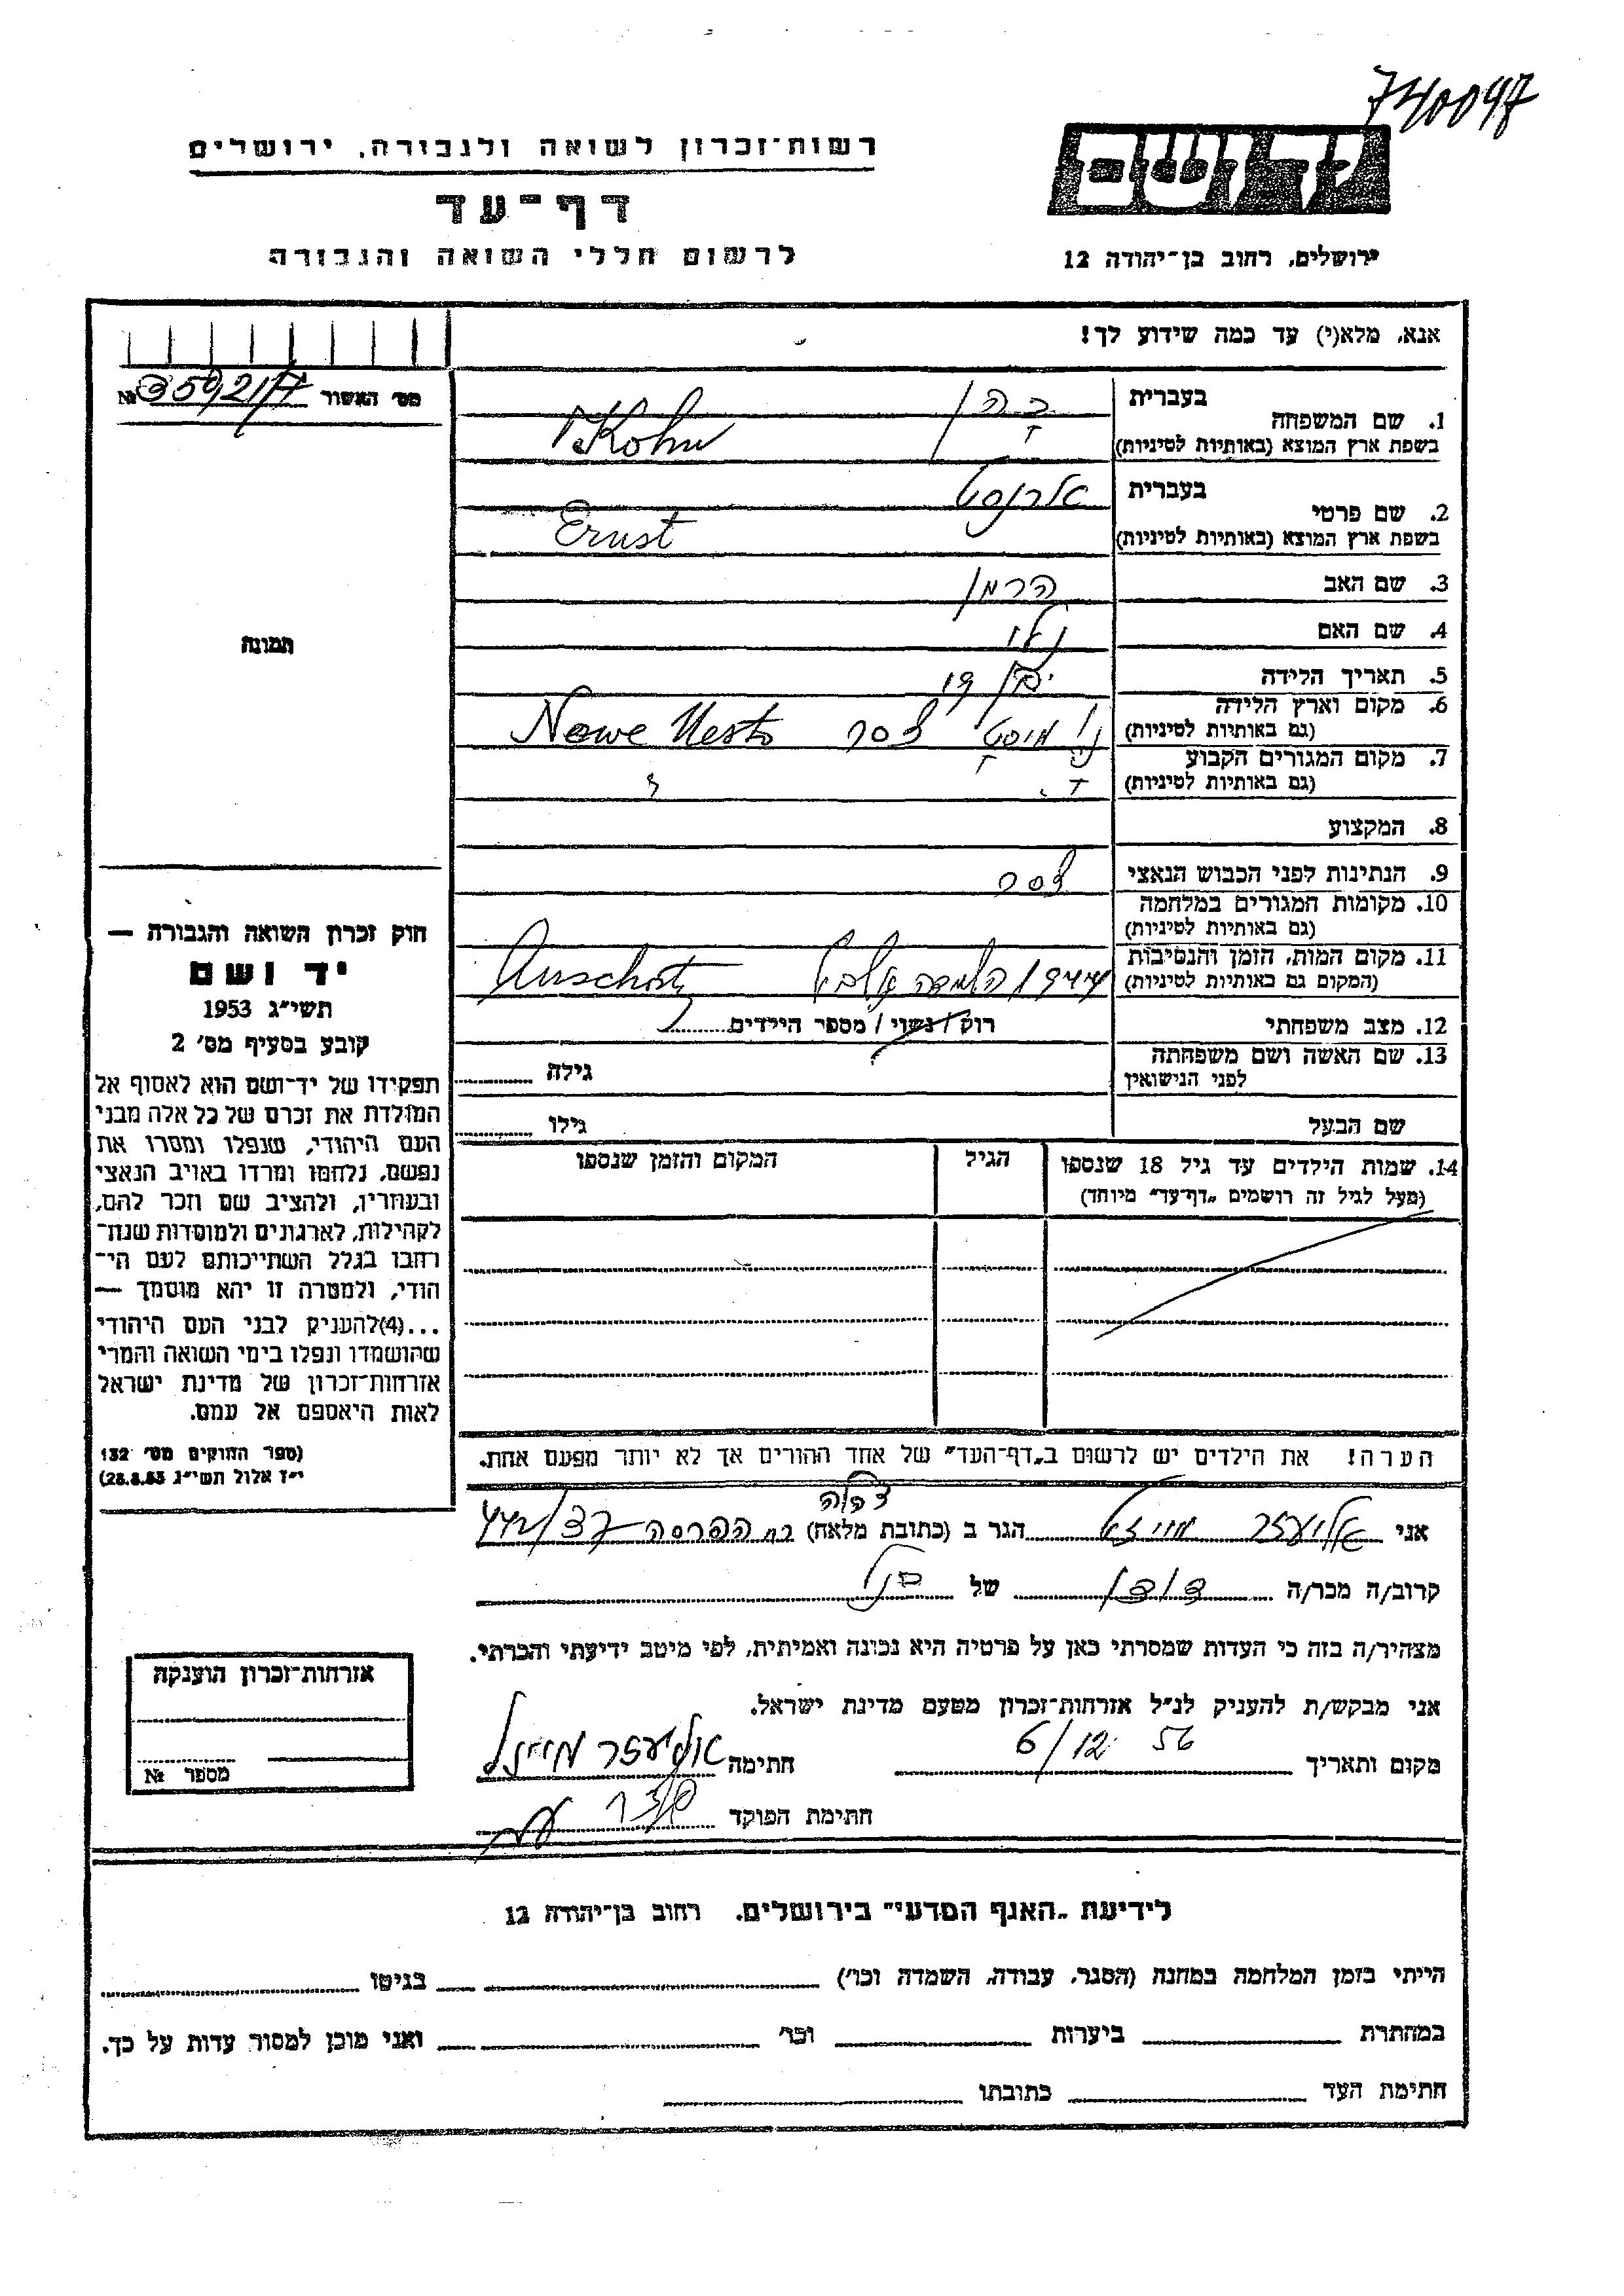 740047
רשות־זכרון לשואה ולגבורה, ירושלים
דף־עד
לרשום חללי השואה והגבורה
יד ושם
ירושלים, רחוב בן־יהודה 12
אנא, מלא(י) עד כמה שידוע לך!
מס׳ האשור №
1. שם המשפחה
בעברית
כהן
בשפת ארץ המוצא (באותיות לטיניות)
Kohn
2. שם פרטי
בעברית
ארנסט
בשפת ארץ המוצא (באותיות לטיניות)
Ernst
3. שם האב הרמן
4. שם האם
5. תאריך הלידה
6. מקום וארץ הלידה
(גם באותיות לטיניות)
צ'כר
7. מקום המגורים הקבוע
(גם באותיות לטיניות)
8. המקצוע
9. הנתינות לפני הכבוש הנאצי צ'כר
10. מקומות המגורים במלחמה
(גם באותיות לטיניות)
11. מקום המות, הזמן והנסיבות
(המקום גם באותיות לטיניות)
1944
12. מצב משפחתי רוק / נשוי / מספר הילדים
13. שם האשה ושם משפחתה
לפני הנישואין
גילה
שם הבעל גילו
14. שמות הילדים עד גיל 18 שנספו
(מעל לגיל זה רושמים „דף־עד״ מיוחד)
הגיל
המקום והזמן שנספו
הערה! את הילדים יש לרשום ב„דף־העד״ של אחד ההורים אך לא יותר מפעם אחת.
אני אליעזר הגר ב (כתובת מלאה)
קרוב/ה מכר/ה של
מצהיר/ה בזה כי העדות שמסרתי כאן על פרטיה היא נכונה ואמיתית, לפי מיטב ידיעתי והכרתי.
אני מבקש/ת להעניק לנ״ל אזרחות־זכרון מטעם מדינת ישראל.
מקום ותאריך 6/12 56 חתימה אליעזר
חתימת הפוקד
תמונה
חוק זכרון השואה והגבורה —
יד ושם
תשי״ג 1953
קובע בסעיף מס׳ 2
תפקידו של יד־ושם הוא לאסוף אל
המולדת את זכרם של כל אלה מבני
העם היהודי, שנפלו ומסרו את
נפשם, נלחמו ומרדו באויב הנאצי
ובעוזריו, ולהציב שם וזכר להם,
לקהילות, לארגונים ולמוסדות שנח־
רחבו בגלל השתייכותם לעם הי־
הודי, ולמטרה זו יהא מוסמך —
...(4)להעניק לבני העם היהודי
שהושמדו ונפלו בימי השואה והמרי
אזרחות־זכרון של מדינת ישראל
לאות היאספם אל עמם.
(ספר החוקים מס׳ 132
י״ז אלול תשי״ג 28.8.53)
אזרחות־זכרון הוענקה
מספר №
לידיעת „האגף המדעי״ בירושלים, רחוב בן־יהודה 12
הייתי בזמן המלחמה במחנה (הסגר, עבודה, השמדה וכו׳) בגיטו
במחתרת ביערות וכו׳ ואני מוכן למסור עדות על כך.
חתימת העד כתובתו